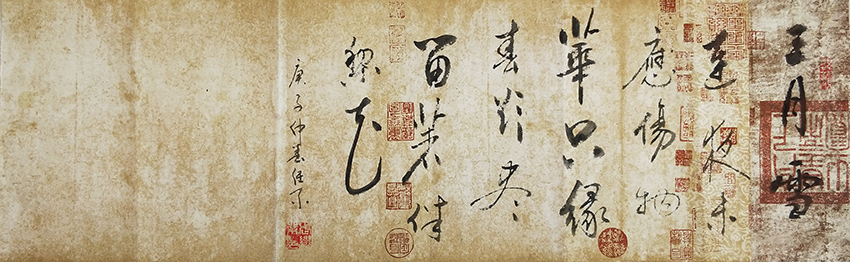 三月雪
連夜未
應傷物
華只緣
春欲尽
留著伴
梨花
庚子仲春